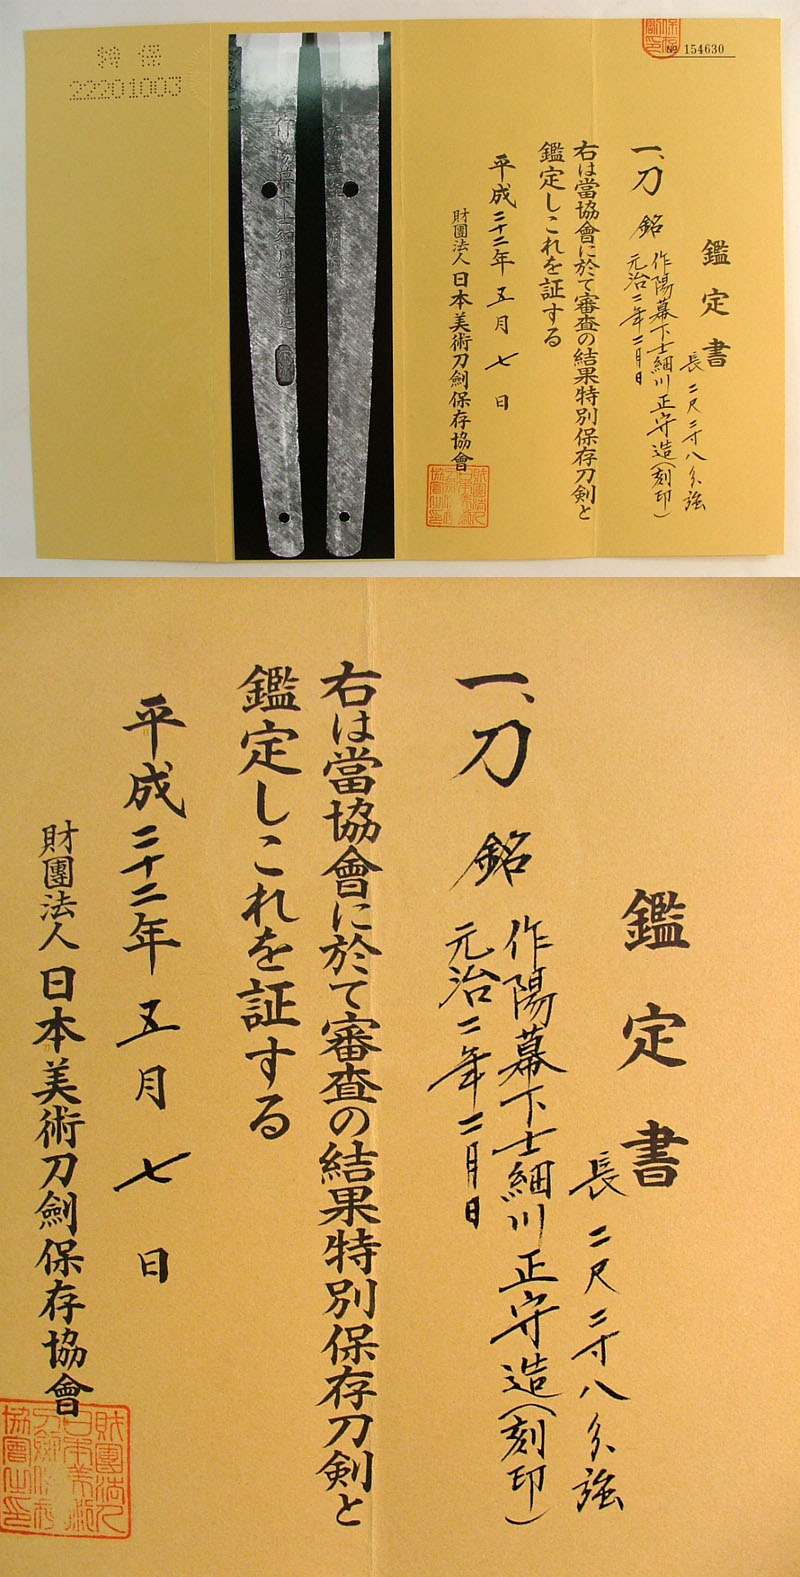 特保
22201003
№ 154630
鑑定書
長二尺二寸八分強
一、刀 銘 作陽幕下士細川正守造(刻印)
元治二年二月日
右は當協會に於て審査の結果特別保存刀剣と
鑑定しこれを証する
平成二十二年五月七日
財團法人日本美術刀劍保存協會
鑑定書
長二尺二寸八分強
一、刀 銘 作陽幕下士細川正守造(刻印)
元治二年二月日
右は當協會に於て審査の結果特別保存刀剣と
鑑定しこれを証する
平成二十二年五月七日
財團法人日本美術刀劍保存協會